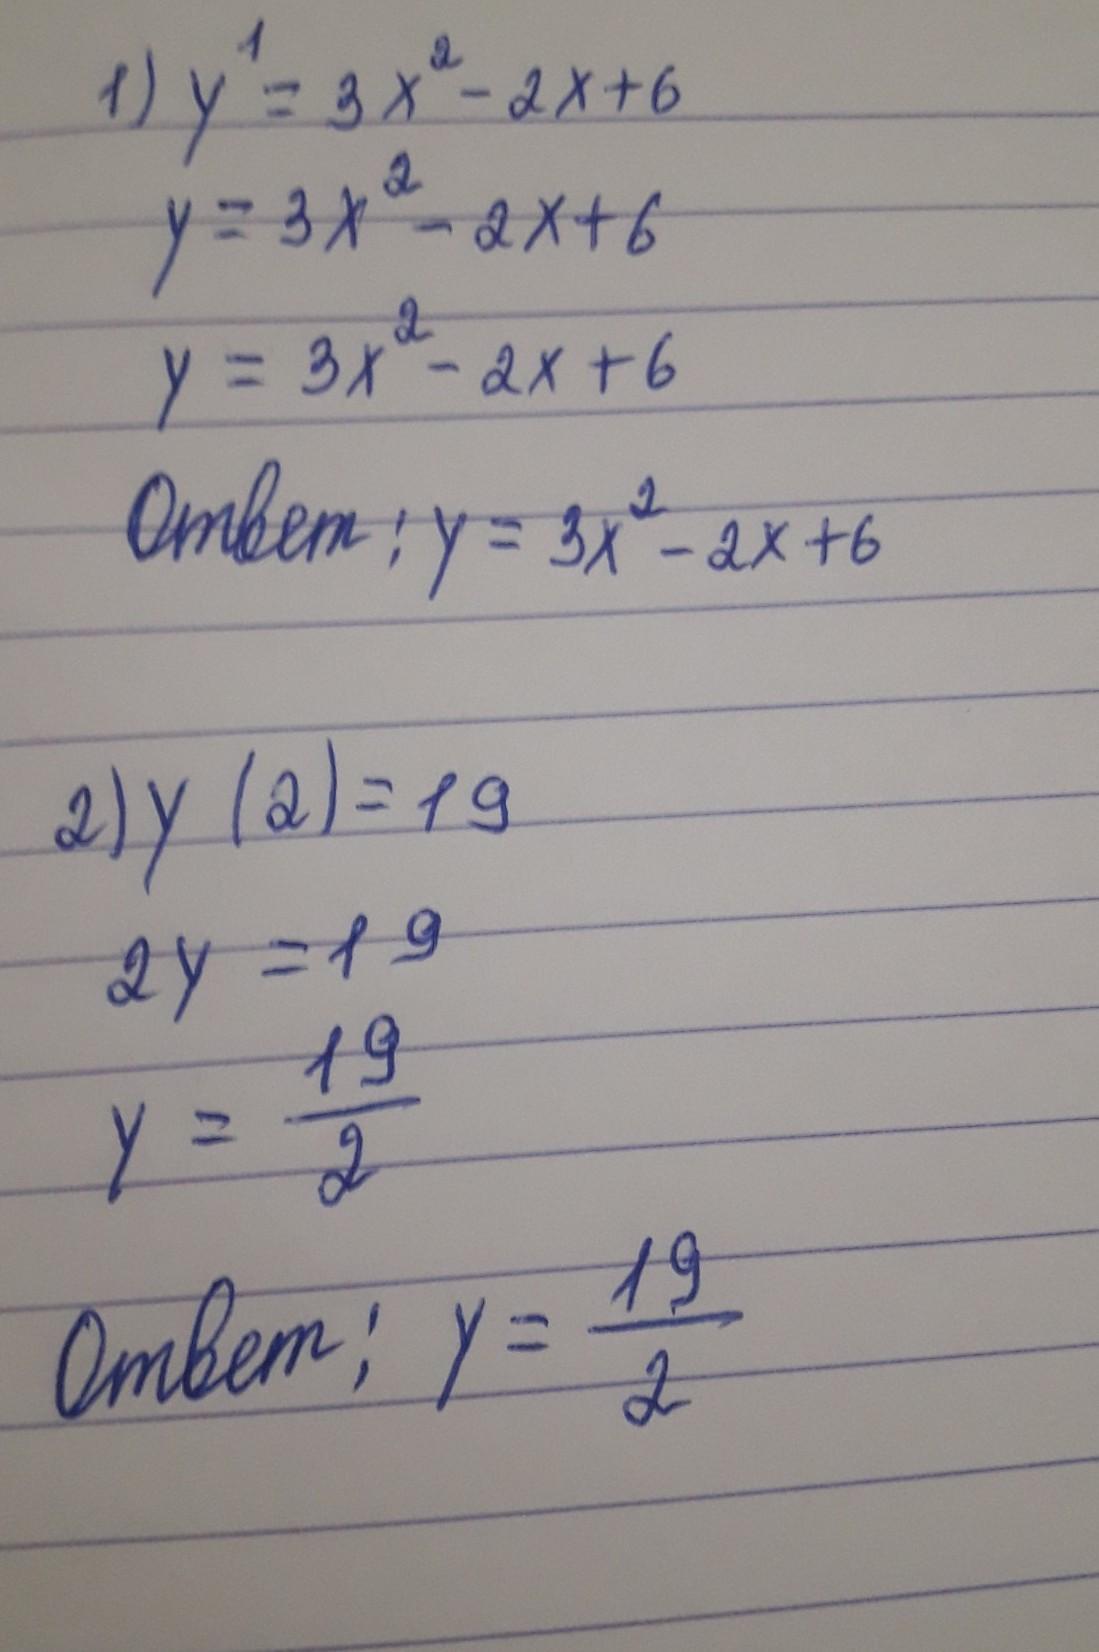 1) y¹ = 3x² - 2x + 6
y = 3x² - 2x + 6
y = 3x² - 2x + 6
Ответ: y = 3x² - 2x + 6
2) y (2) = 19
2y = 19
y = 19/2
Ответ: y = 19/2